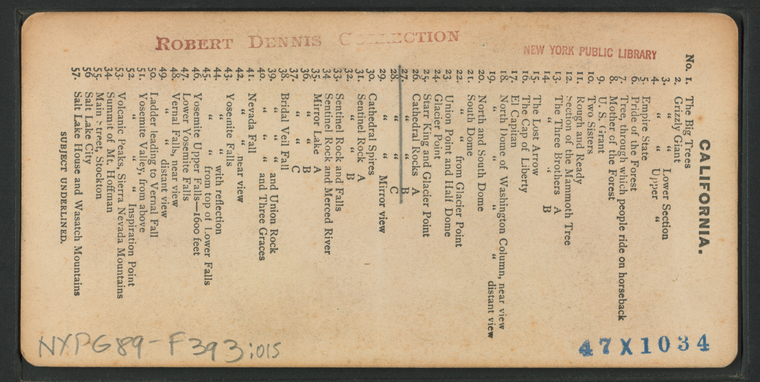 ROBERT DENNIS COLLECTION
NEW YORK PUBLIC LIBRARY
CALIFORNIA.
No. 1. The Big Trees
2. Grizzly Giant
3. " " Lower Section
4. " " Upper "
5. Empire State
6. Pride of the Forest
7. Tree, through which people ride on horseback
8. Mother of the Forest
9. U. S. Grant
10. Two Sisters
11. Rough and Ready
12. Section of the Mammoth Tree
13. The Three Brothers A
14. " " " B
15. The Lost Arrow
16. The Cap of Liberty
17. El Capitan
18. North Dome of Washington Column, near view
19. " " " " distant view
20. North and South Dome
21. South Dome
22. " " from Glacier Point
23. Union Point and Half Dome
24. Glacier Point
25. Starr King and Glacier Point
26. Cathedral Rocks A
27. " " B
28. " " C
29. " " Mirror view
30. Cathedral Spires
31. Sentinel Rock A
32. " " B
33. Sentinel Rock and Falls
34. Sentinel Rock and Merced River
35. Mirror Lake A
36. " " B
37. " " C
38. Bridal Veil Fall
39. " " " and Union Rock
40. " " " and Three Graces
41. Nevada Fall
42. " " near view
43. Yosemite Falls
44. " " with reflection
45. " " from top of Lower Falls
46. Yosemite Upper Falls—1600 feet
47. Lower Yosemite Falls
48. Vernal Falls, near view
49. " " distant view
50. Ladder leading to Vernal Fall
51. Yosemite Valley, from above
52. " " " Inspiration Point
53. Volcanic Peaks, Sierra Nevada Mountains
54. Summit of Mt. Hoffman
55. Main Street, Stockton
56. Salt Lake City
57. Salt Lake House and Wasatch Mountains
SUBJECT UNDERLINED.
NYPG89-F393:015
47X1034